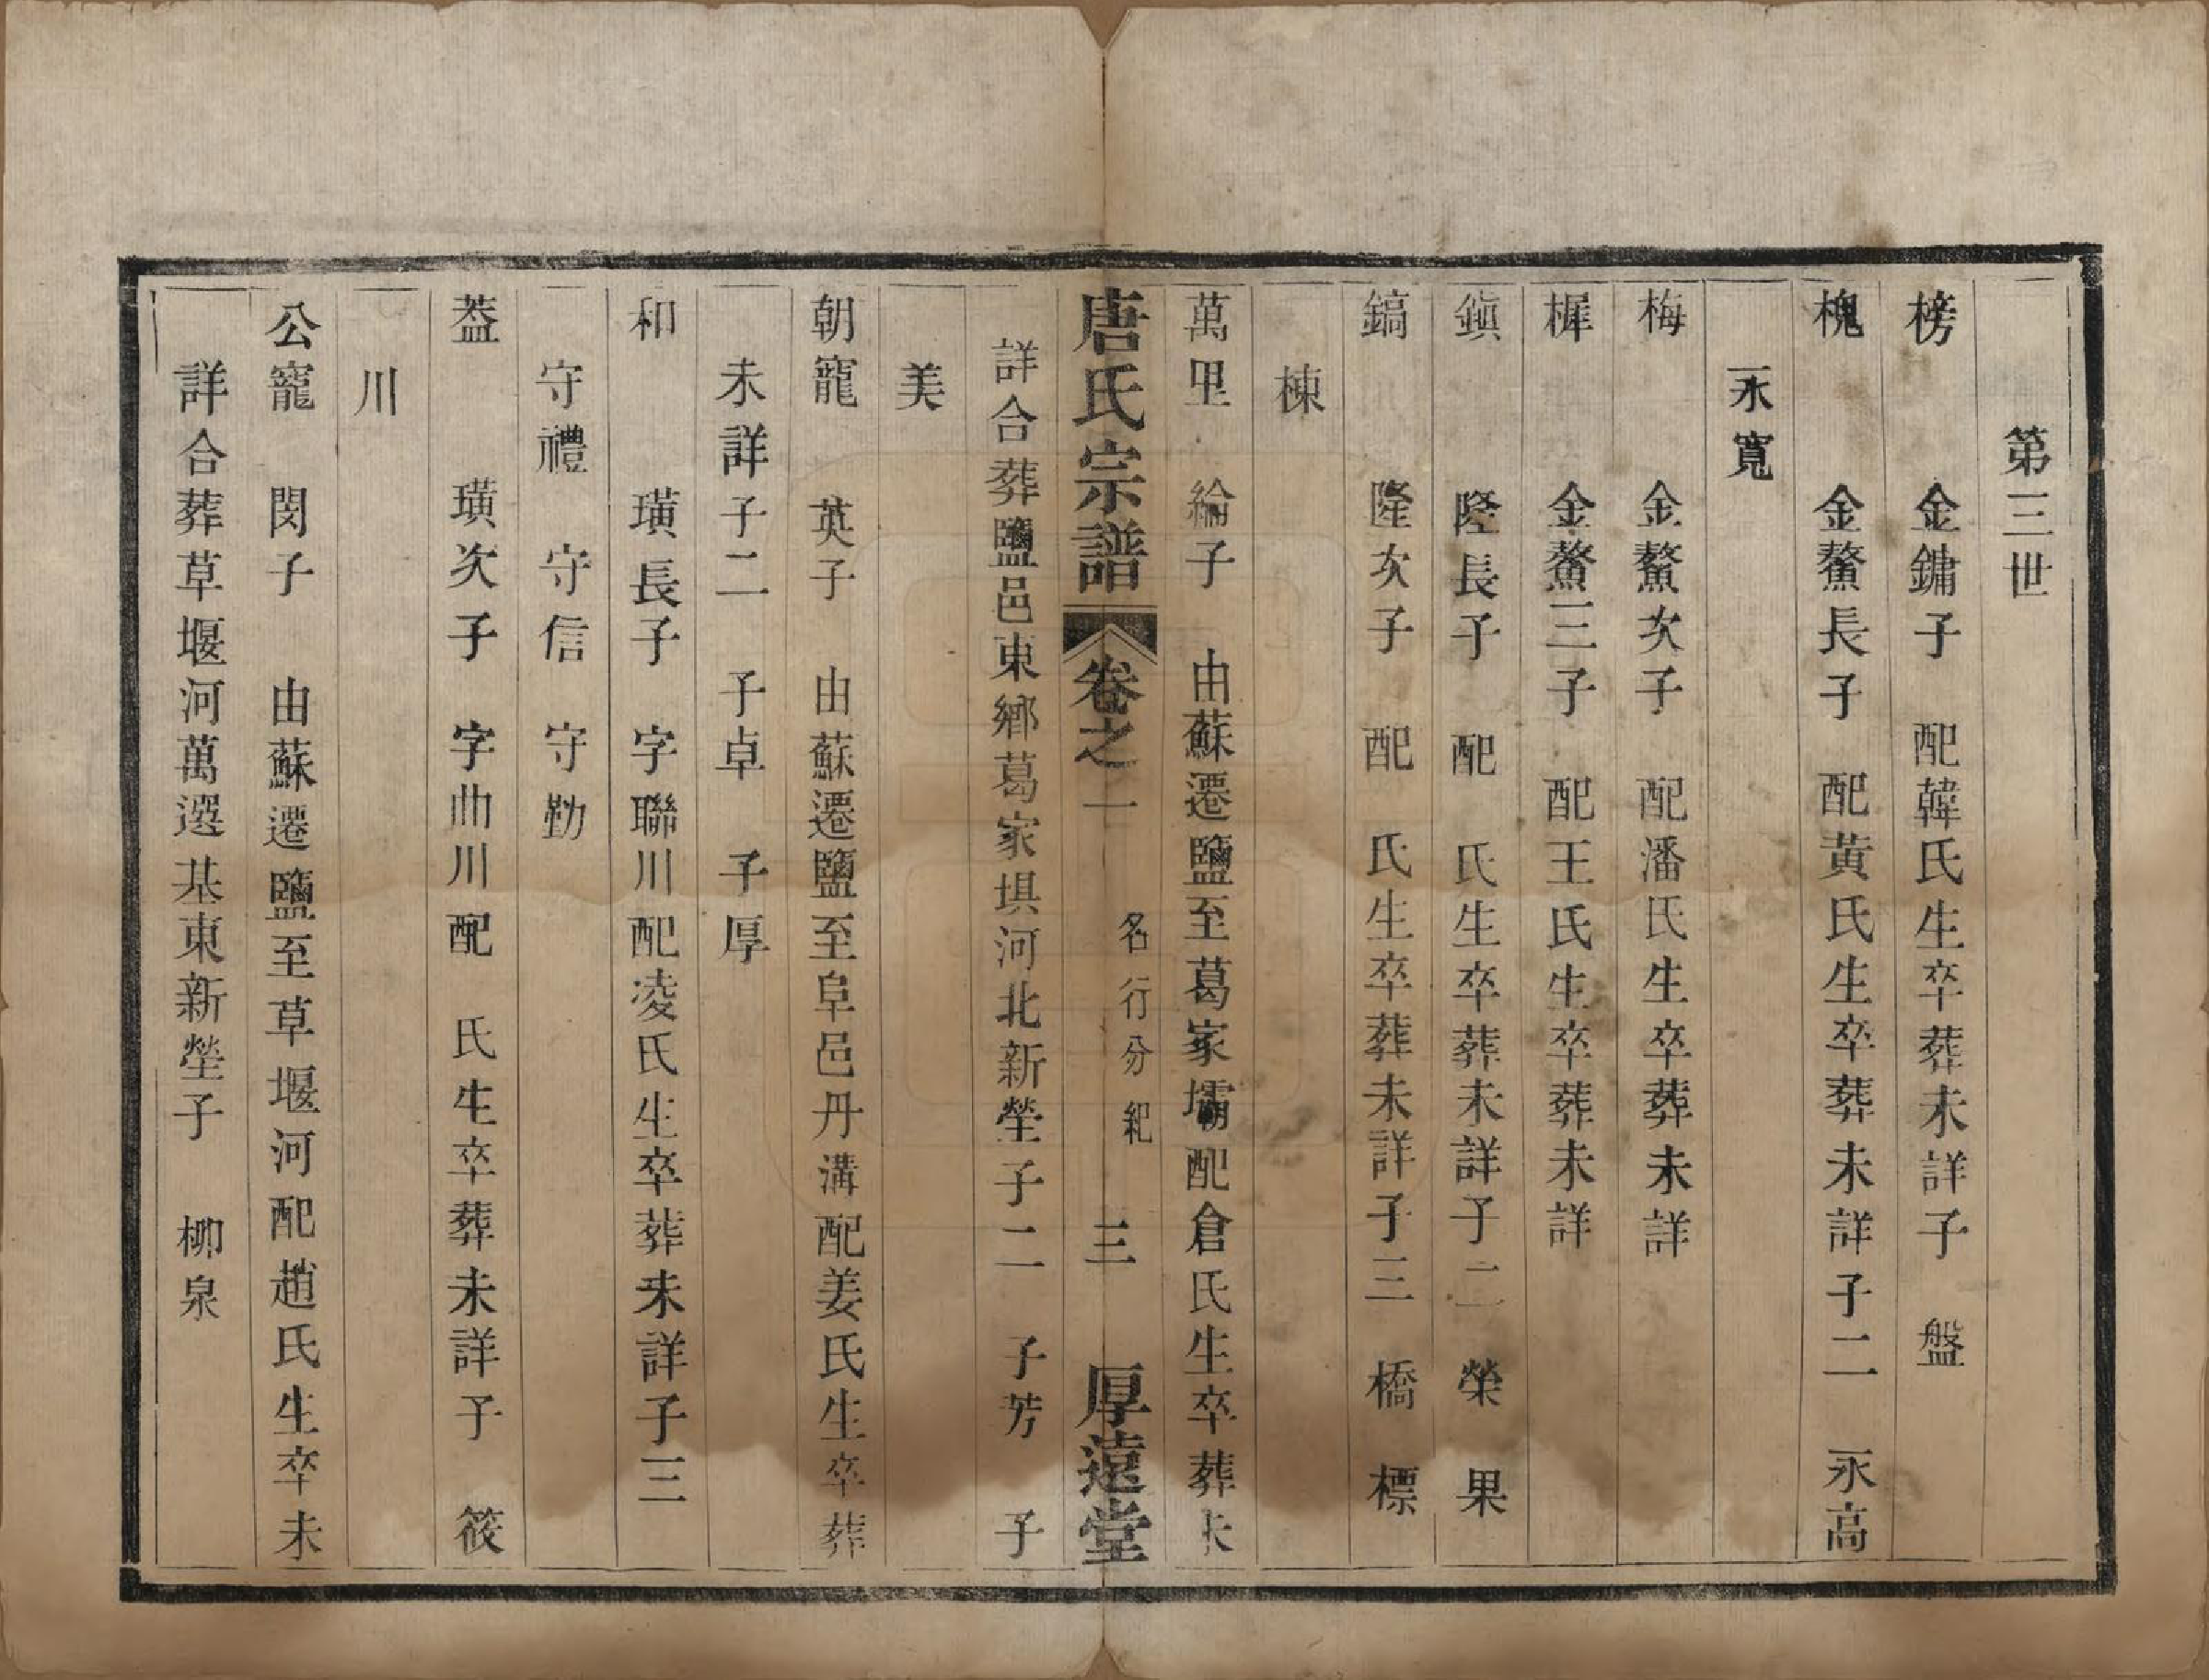 第三世
榜 金鏞子 配韓氏生卒葬未詳子 盤
槐 金鰲長子 配黃氏生卒葬未詳子二 永高
永寬
梅 金鰲次子 配潘氏生卒葬未詳
樨 金鰲三子 配王氏生卒葬未詳
鎭 隆長子 配 氏生卒葬未詳子二 榮 果
鎬 隆次子 配 氏生卒葬未詳子三 橋 標
棟
萬里 綸子 由蘇遷鹽至葛家壩配倉氏生卒葬未
唐氏宗譜 卷之一 名行分紀 三 厚遠堂
詳合葬鹽邑東鄉葛家埧河北新塋子二 子芳 子
美
朝寵 英子 由蘇遷鹽至阜邑丹溝配姜氏生卒葬
未詳子二 子卓 子厚
和 璜長子 字聯川配凌氏生卒葬未詳子三
守禮 守信 守勤
葢 璜次子 字曲川配 氏生卒葬未詳子 筱
川
公寵 閔子 由蘇遷鹽至草堰河配趙氏生卒未
詳合葬草堰河萬選基東新塋子 柳泉